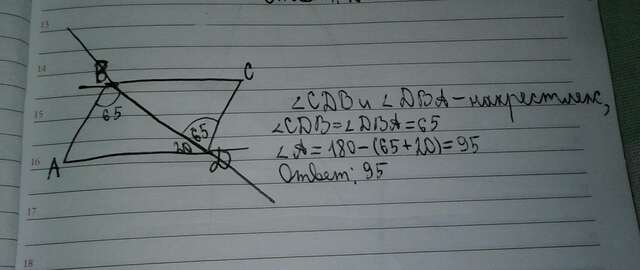 13
14
15
16
17
18
B
C
65
65
20
A
D
∠CDB и ∠DBA - накрестлеж,
∠CDB = ∠DBA = 65
∠A = 180 - (65 + 20) = 95
Ответ: 95